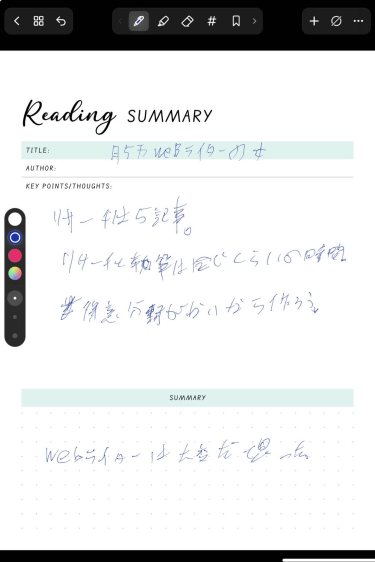 Reading SUMMARY
TITLE: 月5万webライターの本
AUTHOR:
KEY POINTS/THOUGHTS:
リサーチは5記事。
リサーチと執筆は同じくらいの時間。
得意分野がないから作ろう。
SUMMARY
webライターは大変だと思った